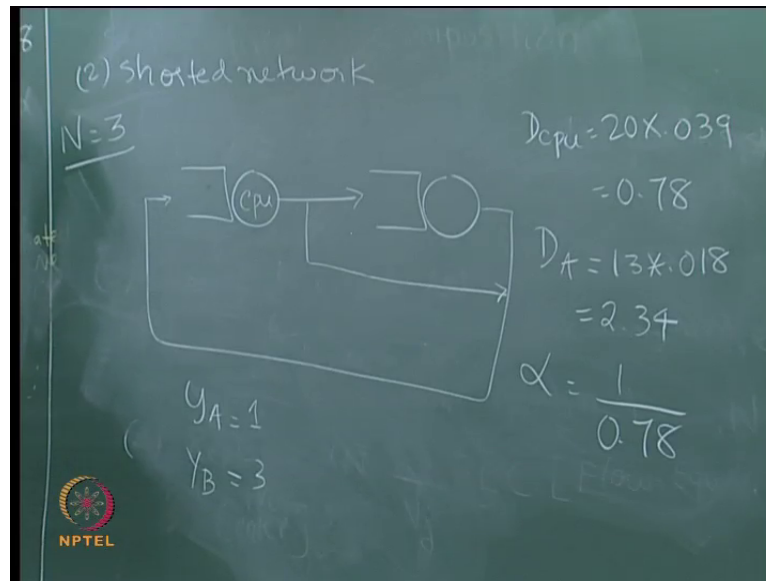 8
(2) Shorted network
N=3
Dcpu = 20X.039
= 0.78
cpu
DA = 13X.018
= 2.34
α = 1
0.78
yA = 1
YB = 3
NPTEL